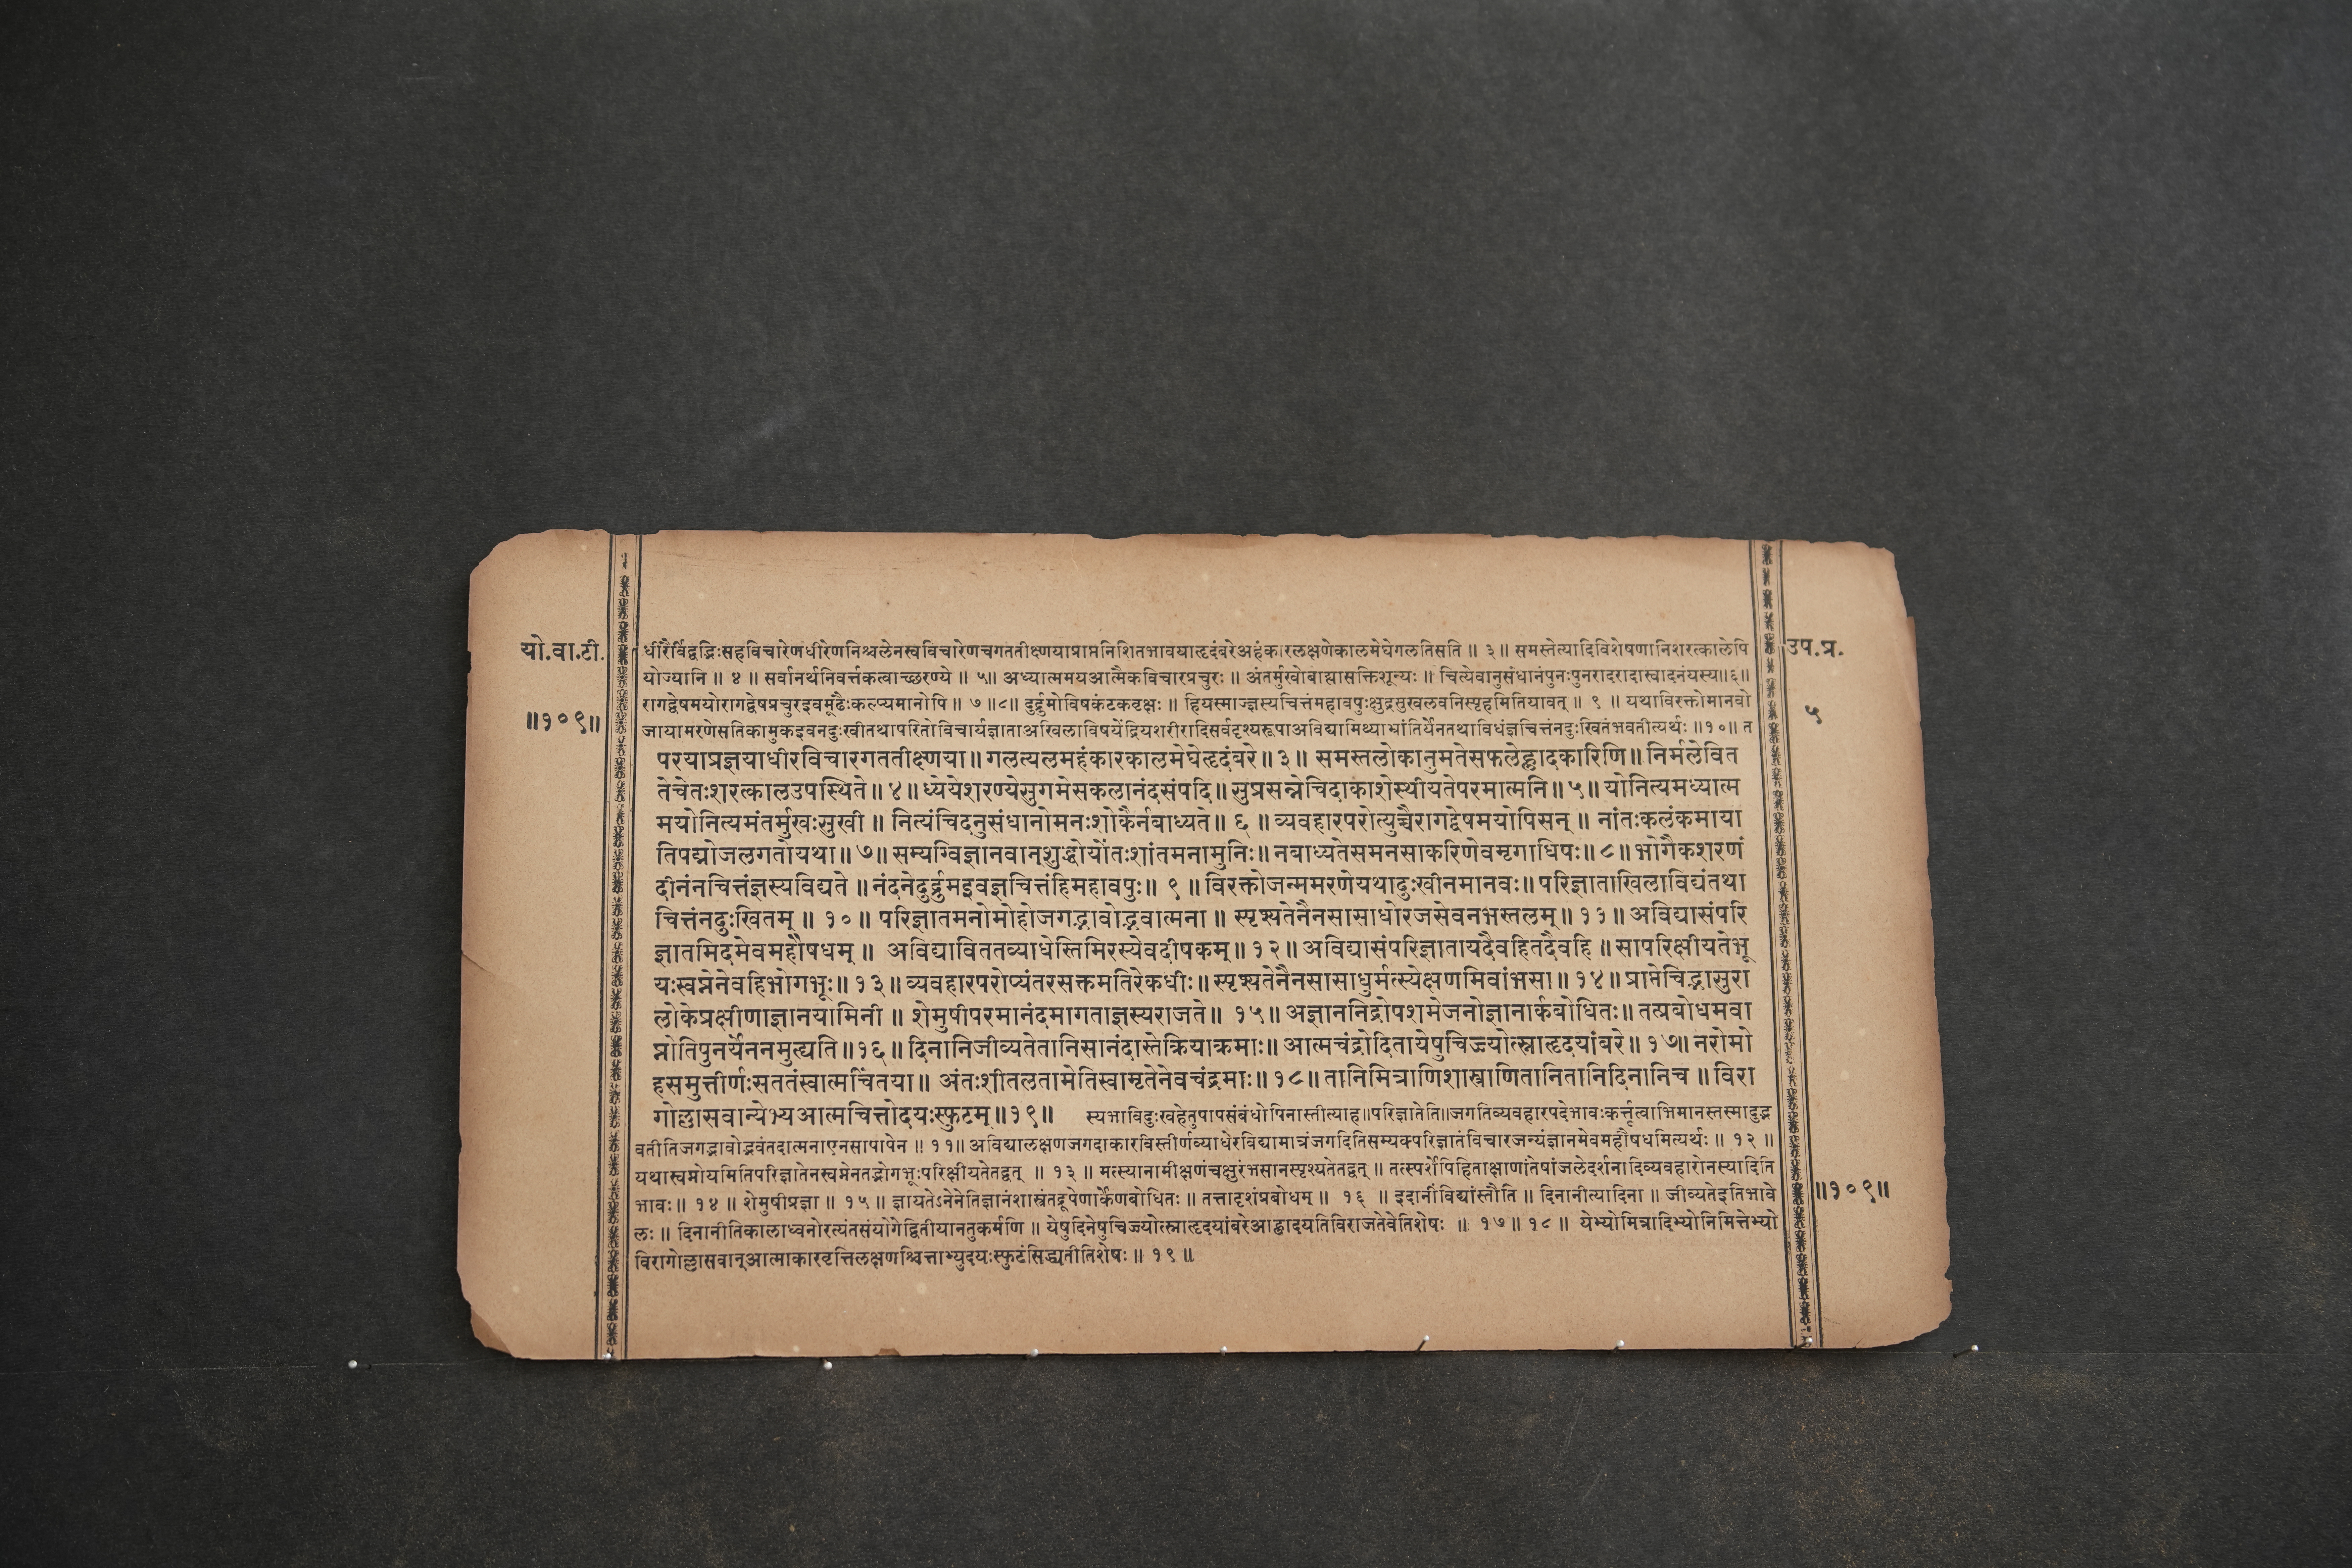 यो.वा.टी.
॥१०९॥
उप.प्र.
५
धीरैर्विद्वद्भिःसहविचारेणधीरेणनिश्चलेनस्वविचारेणचगततीक्ष्णयाप्राप्तनिशितभावयाहृदंबरेअहंकारलक्षणेकालमेघेगलतिसति ॥ ३ ॥ समस्तेत्यादिविशेषणानिशरत्कालेपि
योज्यानि ॥ ४ ॥ सर्वानर्थनिवर्त्तकत्वाच्छरण्ये ॥ ५॥ अध्यात्ममयआत्मैकविचारप्रचुरः ॥ अंतर्मुखोबाह्यासक्तिशून्यः ॥ चित्येवानुसंधानंपुनःपुनरादरादास्वादनंयस्य॥६॥
रागद्वेषमयोरागद्वेषप्रचुरइवमूढैःकल्प्यमानोपि ॥ ७ ॥८॥ दुर्द्रुमोविषकंटकवृक्षः ॥ हियस्माज्ज्ञस्यचित्तंमहावपुःक्षुद्रसुखलवनिस्पृहमितियावत् ॥ ९ ॥ यथाविरक्तोमानवो
जायामरणेसतिकामुकइवनदुःखीतथापरितोविचार्यज्ञाताअखिलाविषयेंद्रियशरीरादिसर्वदृश्यरूपाअविद्यामिथ्याभ्रांतिर्येनतथाविधंज्ञचित्तंनदुःखितंभवतीत्यर्थः ॥१०॥ त
परयाप्रज्ञयाधीरविचारगततीक्ष्णया॥ गलत्यलमहंकारकालमेघेहृदंबरे॥३॥ समस्तलोकानुमतेसफलेह्लादकारिणि॥ निर्मलेवित
तेचेतःशरत्कालउपस्थिते॥४॥ध्येयेशरण्येसुगमेसकलानंदसंपदि॥सुप्रसन्नेचिदाकाशेस्थीयतेपरमात्मनि॥५॥ योनित्यमध्यात्म
मयोनित्यमंतर्मुखःसुखी॥ नित्यंचिदनुसंधानोमनःशोकैर्नबाध्यते॥ ६ ॥व्यवहारपरोत्युच्चैरागद्वेषमयोपिसन्॥ नांतःकलंकमाया
तिपद्मोजलगतोयथा॥७॥सम्यग्विज्ञानवान्शुद्धोयोंतःशांतमनामुनिः॥नबाध्यतेसमनसाकरिणेवमृगाधिपः॥८॥भोगैकशरणं
दीनंनचित्तंज्ञस्यविद्यते॥नंदनेदुर्द्रुमइवज्ञचित्तंहिमहावपुः॥ ९॥विरक्तोजन्ममरणेयथादुःखीनमानवः॥परिज्ञाताखिलाविद्यंतथा
चित्तंनदुःखितम्॥ १०॥ परिज्ञातमनोमोहोजगद्भावोद्भवात्मना॥ स्पृश्यतेनैनसासाधोरजसेवनभस्तलम्॥११॥अविद्यासंपरि
ज्ञातमिदमेवमहौषधम्॥ अविद्याविततव्याधेस्तिमिरस्येवदीपकम्॥१२॥अविद्यासंपरिज्ञातायदैवहितदैवहि॥सापरिक्षीयतेभू
यःस्वप्नेनेवहिभोगभूः॥१३॥व्यवहारपरोप्यंतरसक्तमतिरेकधीः॥स्पृश्यतेनैनसासाधुर्मत्स्येक्षणमिवांभसा॥१४॥प्राप्तेचिद्भासुरा
लोकेप्रक्षीणाज्ञानयामिनी॥ शेमुषीपरमानंदमागताज्ञस्यराजते॥ १५॥अज्ञाननिद्रोपशमेजनोज्ञानार्कबोधितः॥तत्प्रबोधमवा
प्नोतिपुनर्येननमुह्यति॥१६॥दिनानिजीव्यतेतानिसानंदास्तेक्रियाक्रमाः॥आत्मचंद्रोदितायेषुचिज्ज्योत्स्नाहृदयांबरे॥१७॥नरोमो
हसमुत्तीर्णःसततंस्वात्मचिंतया॥ अंतःशीतलतामेतिस्वामृतेनेवचंद्रमाः॥१८॥तानिमित्राणिशास्त्राणितानितानिदिनानिच॥विरा
गोल्लासवान्येभ्यआत्मचित्तोदयःस्फुटम्॥१९॥ स्यभाविदुःखहेतुपापसंबंधोपिनास्तीत्याह॥परिज्ञातेति॥जगतिव्यवहारपदेभावःकर्त्तृत्वाभिमानस्तस्मादुद्भ
वतीतिजगद्भावोद्भवंतदात्मनाएनसापापेन ॥ ११॥ अविद्यालक्षणजगदाकारविस्तीर्णव्याधेरविद्यामात्रंजगदितिसम्यक्परिज्ञातंविचारजन्यंज्ञानमेवमहौषधमित्यर्थः ॥ १२ ॥
यथास्वप्नोयमितिपरिज्ञातेनस्वप्नेनतद्भोगभूःपरिक्षीयतेतद्वत् ॥ १३ ॥ मत्स्यानामीक्षणंचक्षुरंभसानस्पृश्यतेतद्वत् ॥ तत्स्पर्शेपिहिताक्षाणांतेषांजलेदर्शनादिव्यवहारोनस्यादिति
भावः॥ १४ ॥ शेमुषीप्रज्ञा ॥ १५ ॥ ज्ञायतेऽनेनेतिज्ञानंशास्त्रंतद्रूपेणार्केणबोधितः ॥ तत्तादृशंप्रबोधम् ॥ १६ ॥ इदानींविद्यांस्तौति ॥ दिनानीत्यादिना ॥ जीव्यतेइतिभावे
लः॥ दिनानीतिकालाध्वनोरत्यंतसंयोगेद्वितीयानतुकर्मणि ॥ येषुदिनेषुचिज्ज्योत्स्नाहृदयांबरेआह्लादयतिविराजतेवेतिशेषः ॥ १७॥ १८ ॥ येभ्योमित्रादिभ्योनिमित्तेभ्यो
विरागोल्लासवान्आत्माकारवृत्तिलक्षणश्चित्ताभ्युदयःस्फुटंसिद्ध्यतीतिशेषः ॥ १९ ॥
॥१०९॥